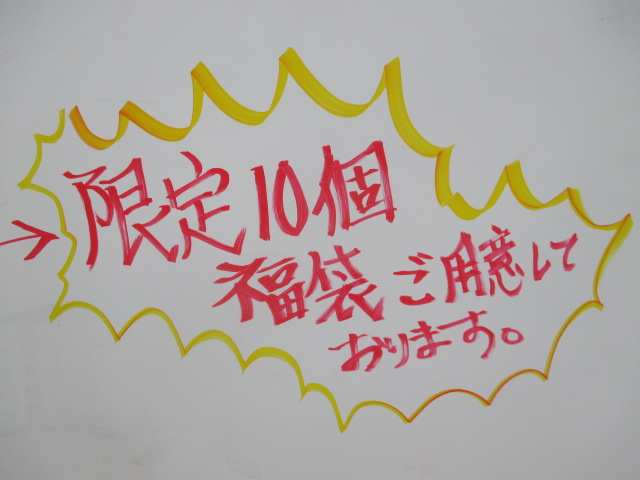 限定10個
福袋ご用意して
おります。